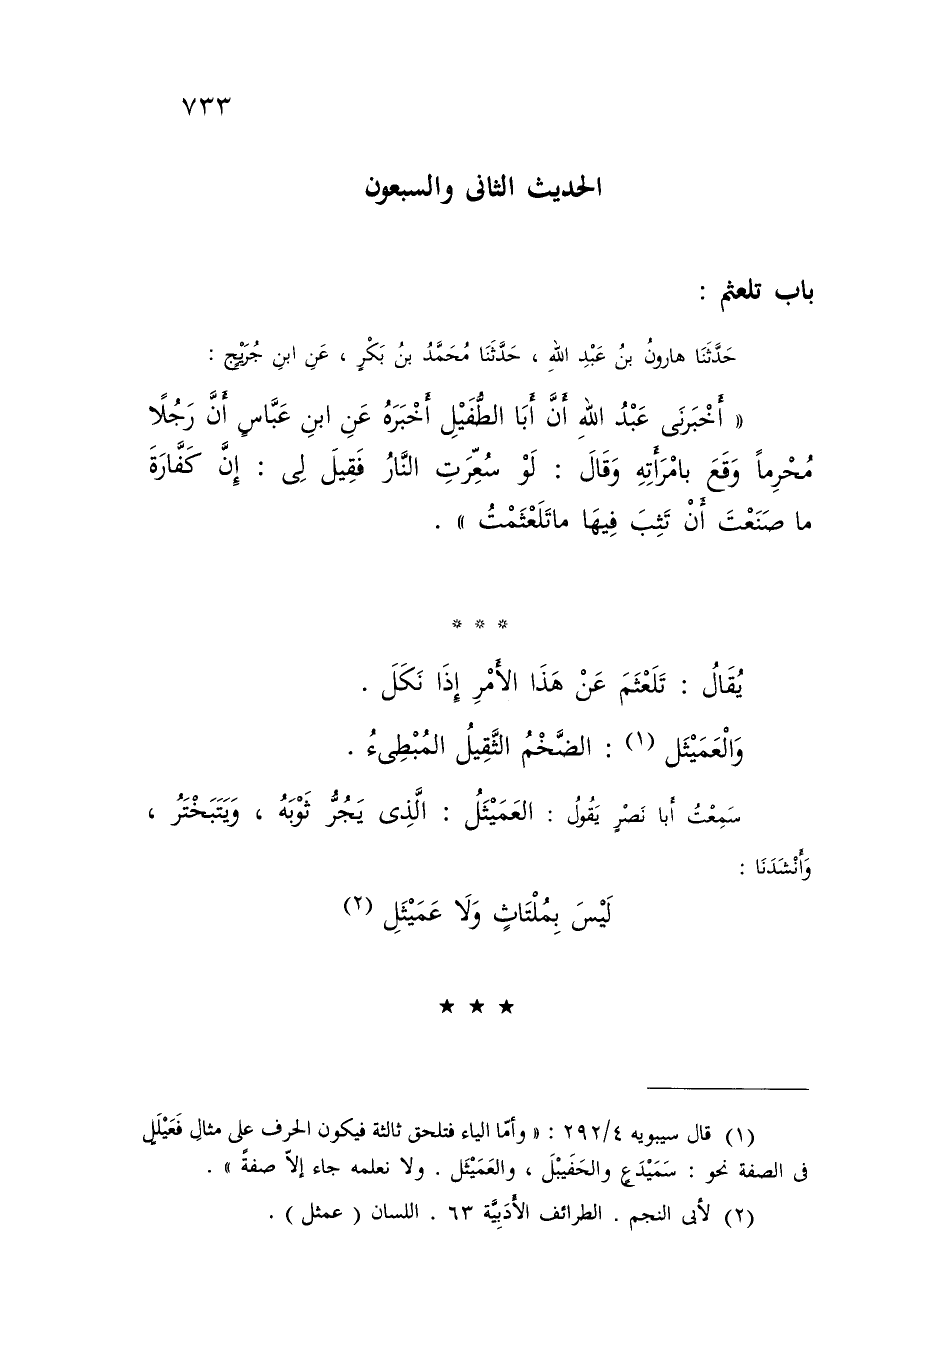 ٧٣٣
الحديث الثانى والسبعون
باب تلعثم :
حَدَّثَنَا هارونُ بنُ عَبْدِ اللهِ ، حَدَّثَنَا مُحَمَّدُ بنُ بَكْرٍ ، عَنِ ابنِ جُرَيْجٍ :
« أَخْبَرَنَى عَبْدُ اللهِ أَنَّ أَبَا الطُّفَيْلِ أَخْبَرَهُ عَنِ ابنِ عَبَّاسٍ أَنَّ رَجُلًا
مُحْرِماً وَقَعَ بامْرَأَتِهِ وَقَالَ : لَوْ سُعِّرَتِ النَّارُ فَقِيلَ لِى : إِنَّ كَفَّارَةَ
ما صَنَعْتَ أَنْ تَثِبَ فِيهَا ماتَلَعْثَمْتُ » .
* * *
يُقَالُ : تَلَعْثَمَ عَنْ هَذَا الأَمْرِ إِذَا نَكَلَ .
وَالْعَمَيْثَل (١) : الضَّخْمُ الثَّقِيلُ المُبْطِىءُ .
سَمِعْتُ أبا نَصْرٍ يَقُولُ : العَمَيْثَلُ : الَّذِى يَجُرُّ ثَوْبَهُ ، وَيَتَبَخْتَرُ ،
وَأَنْشَدَنَا :
لَيْسَ بِمُلْتَاثٍ وَلَا عَمَيْثَلِ (٢)
★ ★ ★
(١) قال سيبويه ٢٩٢/٤ : « وأمّا الياء فتلحق ثالثة فيكون الحرف على مثالِ فَعَيْلَلٍ
فى الصفة نحو : سَمَيْدَعٍ والحَفَيبْلَ ، والعَمَيْثَل . ولا نعلمه جاء إلاّ صفةً » .
(٢) لأبى النجم . الطرائف الأَدَبِيَّة ٦٣ . اللسان ( عمثل ) .